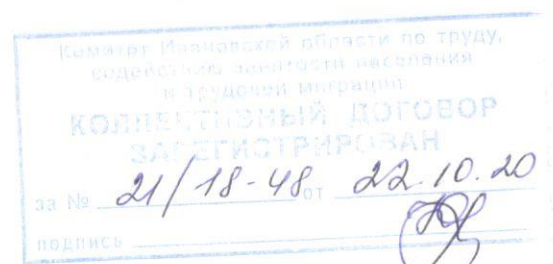 Комитет Ивановской области по труду,
содействию занятости населения
и трудовой миграции
КОЛЛЕКТИВНЫЙ ДОГОВОР
ЗАРЕГИСТРИРОВАН
за № 21/18-48 от 22.10.20
подпись